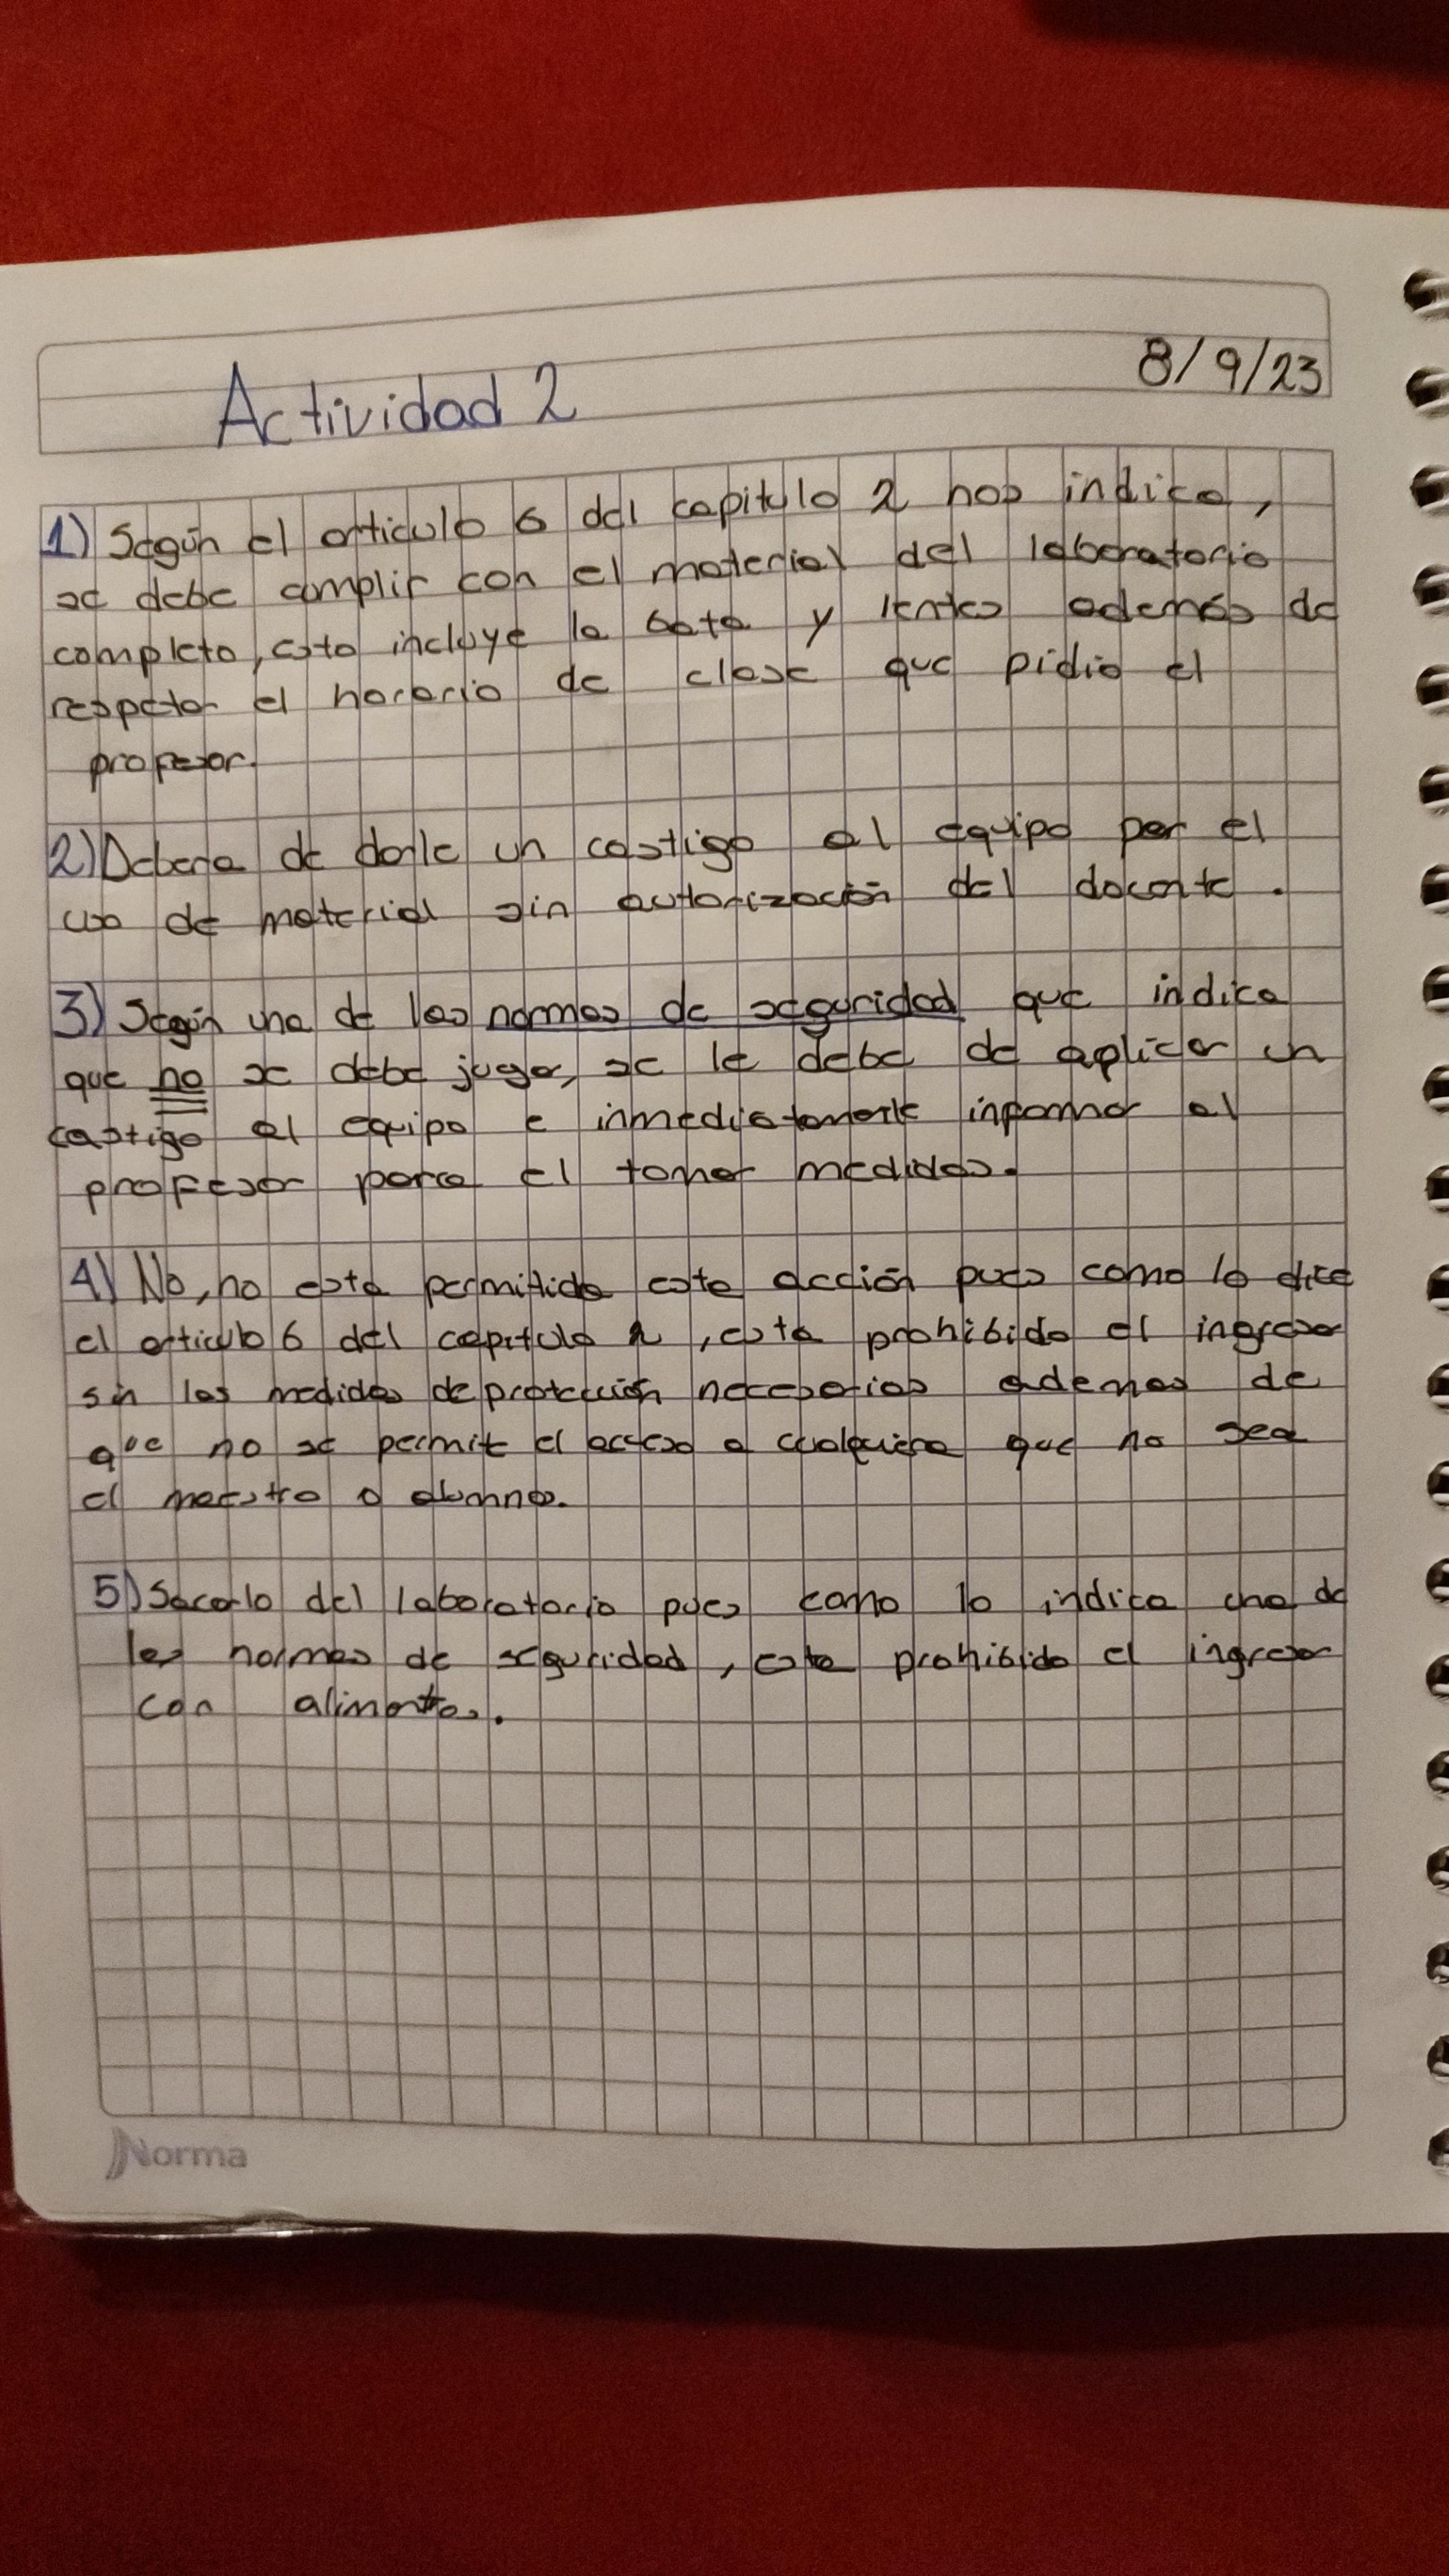 Actividad 2
8/9/23
1) Según el articulo 6 del capitulo 2 nos indica,
se debe cumplir con el material del laboratorio
completo, esto incluye la bata y lentes además de
respetar el horario de clase que pidio el
profesor.
2) Debera de darle un castigo al equipo por el
uso de material sin autorización del docente.
3) Según una de las normas de seguridad que indica
que no se debe jugar, se le debe de aplicar un
castigo al equipo e inmediatamente informar al
profesor para el tomar medidas.
4) No, no esta permitida esta acción pues como lo dice
el articulo 6 del capitulo 2, esta prohibido el ingresar
sin las medidas de protección necesarias ademas de
que no se permite el acceso a cualquiera que no sea
el maestro o alumno.
5) Sacarlo del laboratorio pues como lo indica una de
las normas de seguridad, esta prohibido el ingresar
con alimentos.
Norma